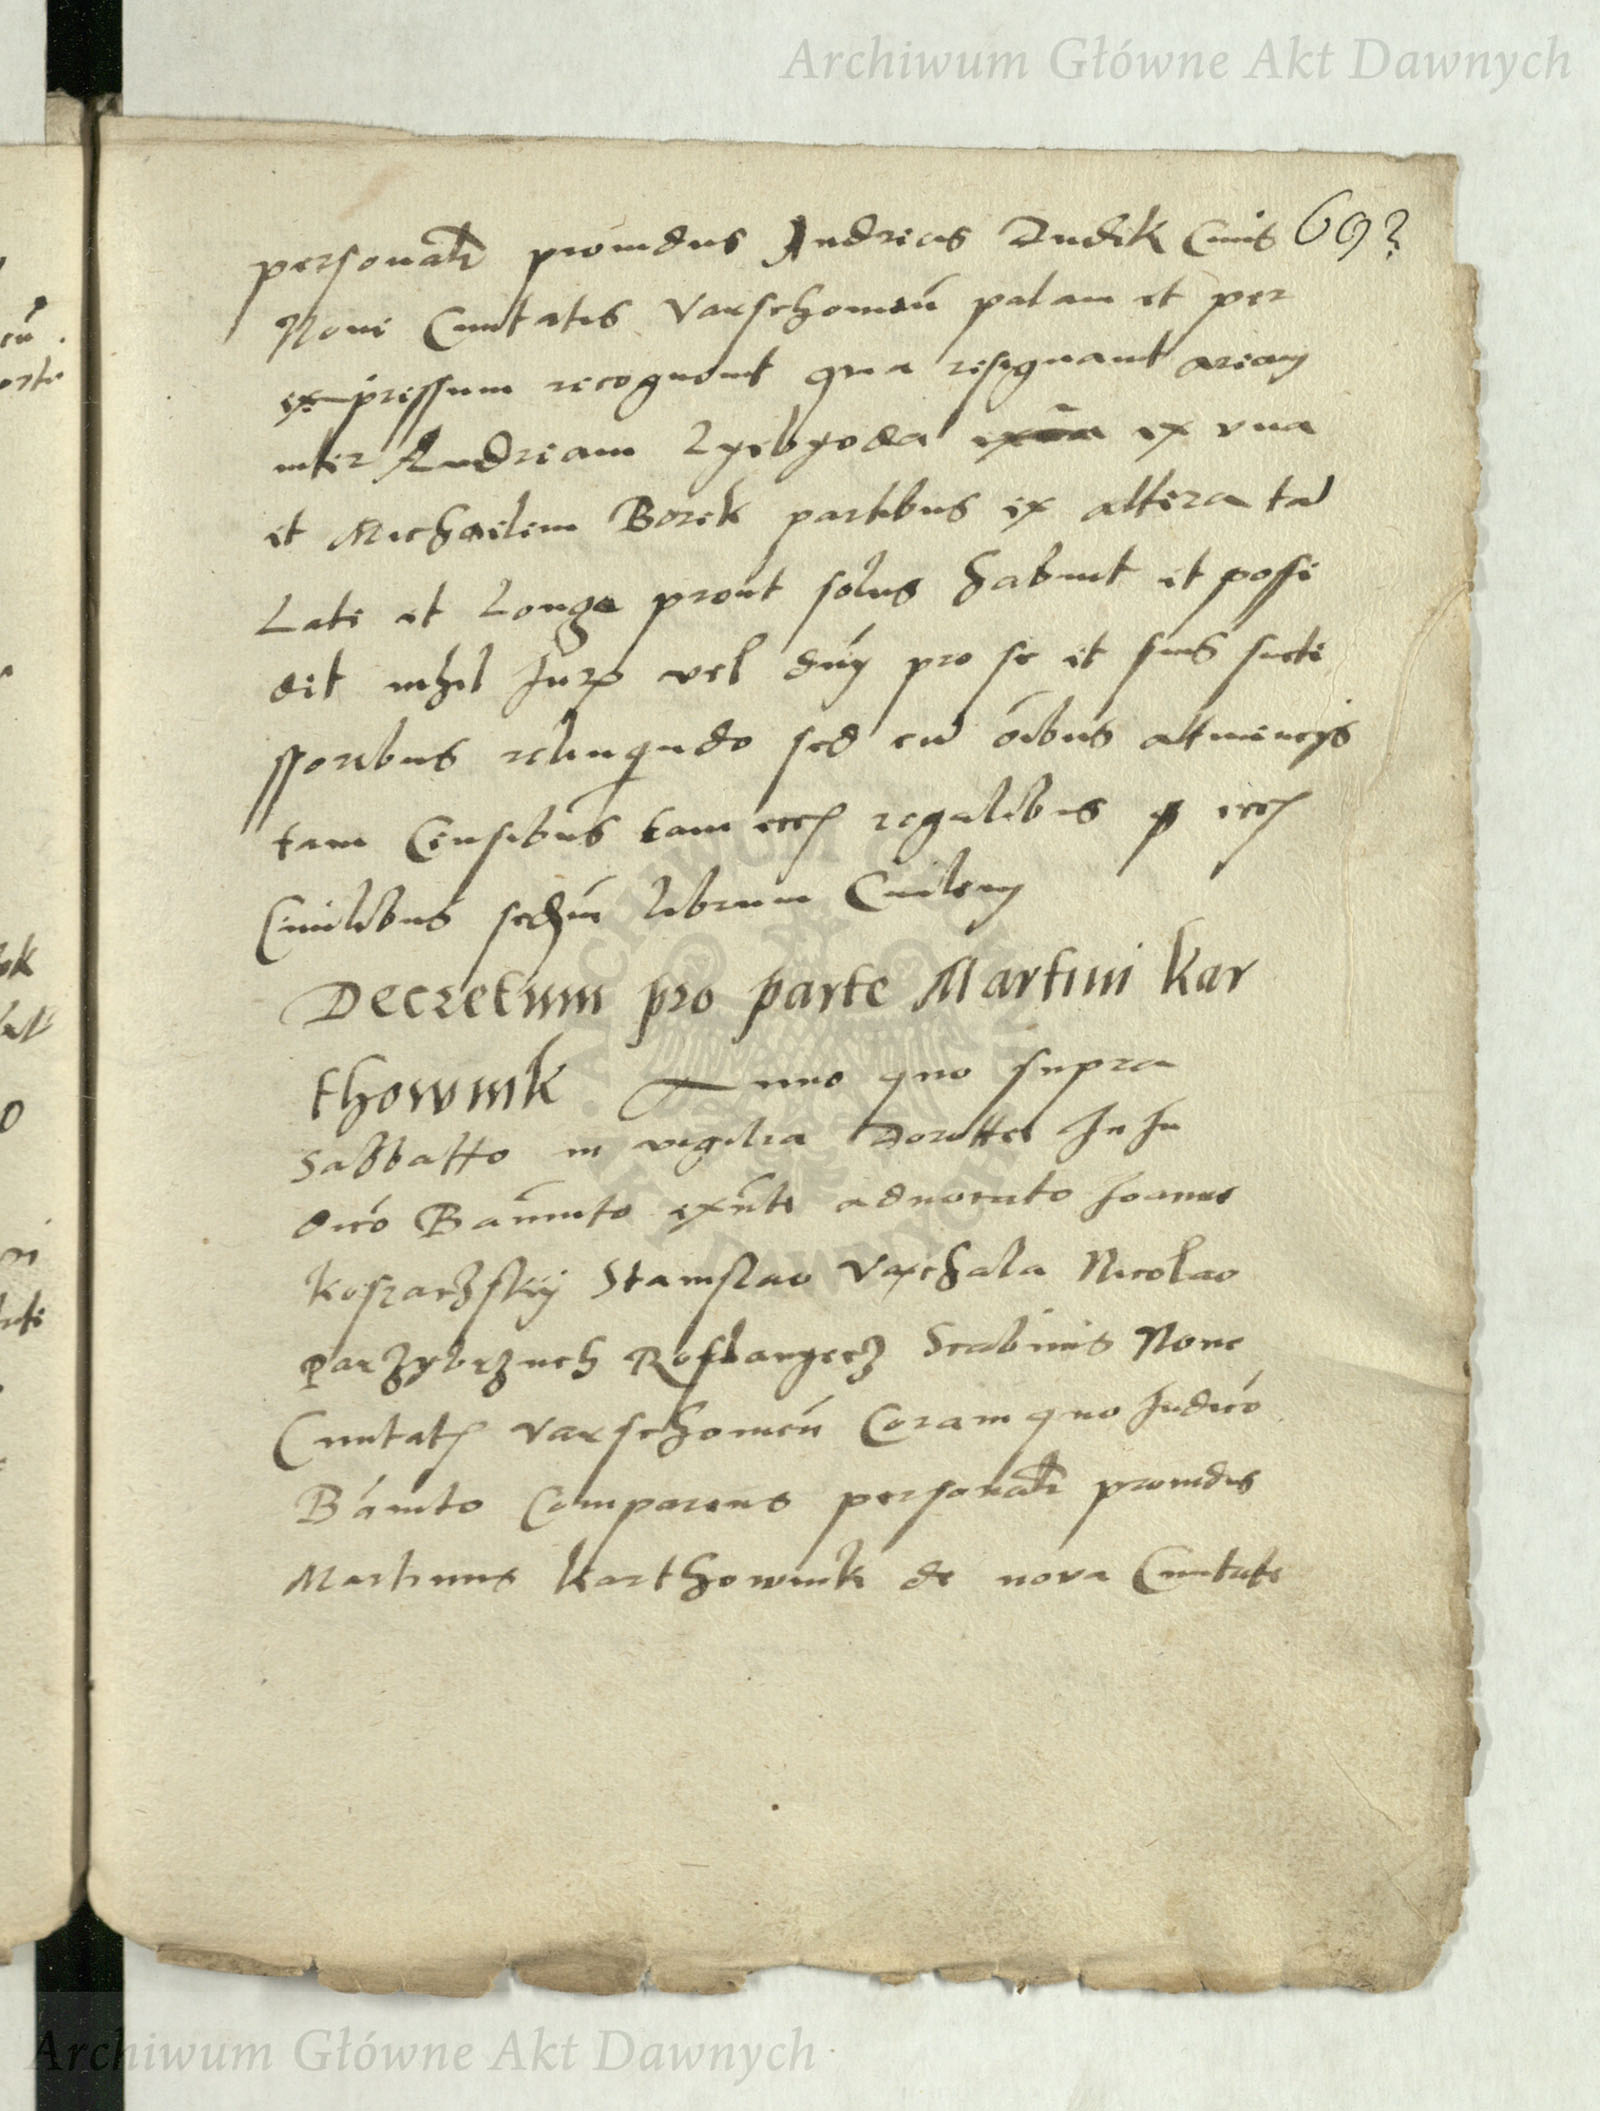 Archiwum Główne Akt Dawnych
personalr prouidus Andreas Dudek Ciuis 69?
Noue Ciuitatis Varschouien palam et per
expressum recognouit qua resignauit aream
inter Andream Lyebyoda ex vna
et Michaelem Borek partibus ex altera ta
Late et Longe prout solus habuit et posse
dit nihil Jur vel dny pro se et suis succe
ssoribus relinqudo sed cu oibus attinencys
tam Censibus tam regalibus
Ciuilibus scdm librum Ciuilem
Decretum pro parte Martini Kar
thownik Anno quo supra
Sabbatto in vigilia Dorotte In Ju
dico Banito exnte aduocato Joanne
Koszarzskÿ Stanislao Vaxchala Nicolao
Parzybrzuch Scabinis Noue
Ciuitat Varschouien Coram quo Judico
Banito Comparens personalr prouidus
Martinus Karthownik de noua Ciuitate
Archiwum Główne Akt Dawnych